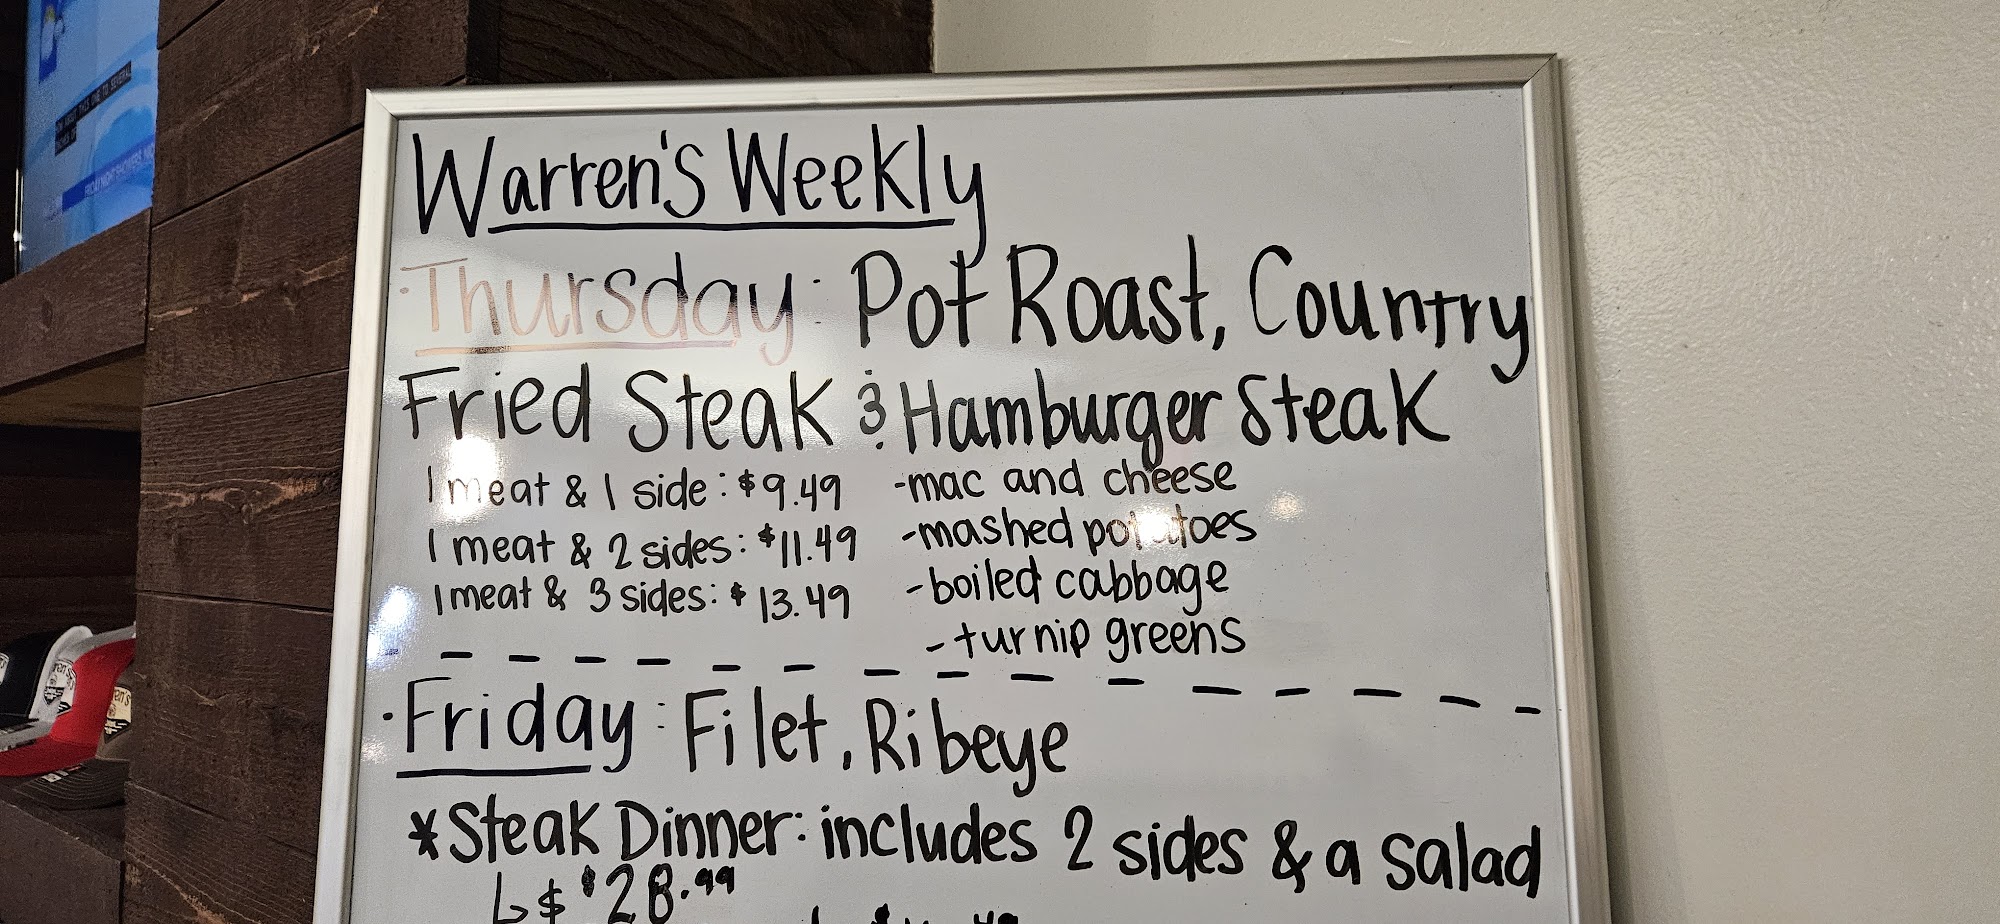 Warren's Weekly
·Thursday: Pot Roast, Country
Fried Steak & Hamburger Steak
1 meat & 1 side: $9.49
1 meat & 2 sides: $11.49
1 meat & 3 sides: $13.49
-mac and cheese
-mashed potatoes
-boiled cabbage
-turnip greens
·Friday: Filet, Ribeye
*Steak Dinner: includes 2 sides & a salad
↳$ $28.99
FRIDAY NIGHT SHOWERS